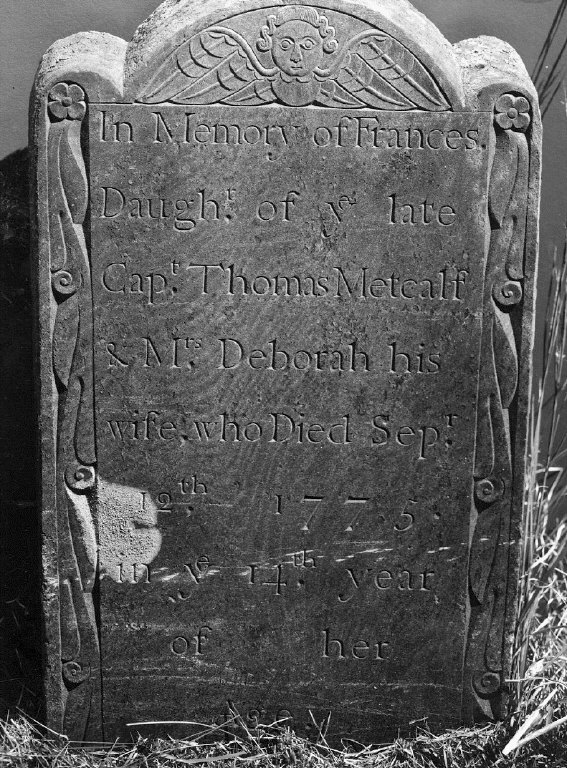 In Memory of Frances.
Daughʳ. of yᵉ late
Capᵗ. Thomas Metcalf
& Mʳˢ. Deborah his
wife, who Died Sepʳ.
12ᵗʰ. 1775.
in yᵉ 14ᵗʰ. year
of her
Age.